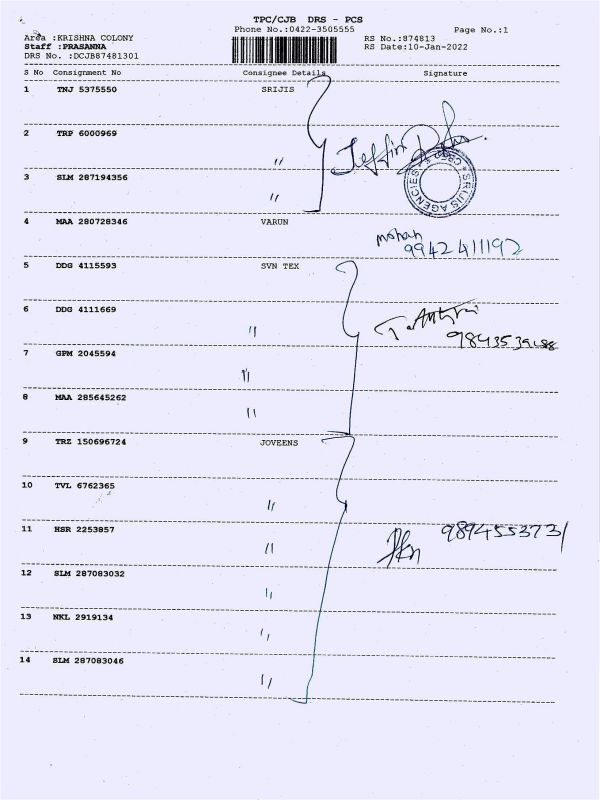 TPC/CJB DRS - PCS
Phone No.:0422-3505555 Page No.:1
Area :KRISHNA COLONY RS No.:874813
Staff :PRASANNA RS Date:10-Jan-2022
DRS No. :DCJB87481301
S No Consignment No Consignee Details Signature
1 TNJ 5375550 SRIJIS
2 TRP 6000969
"
3 SLM 287194356
"
SRIJIS AGENCIES CBE
4 MAA 280728346 VARUN
mohan
9942411192
5 DDG 4115593 SVN TEX
6 DDG 4111669
"
7 GPM 2045594
"
8 MAA 285645262
"
9 TRZ 150696724 JOVEENS
10 TVL 6762365
"
11 HSR 2253857 9894553731
"
12 SLM 287083032
"
13 NKL 2919134
"
14 SLM 287083046
"